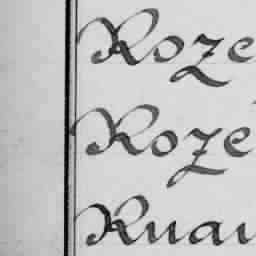 Roze
Roze
Ruau